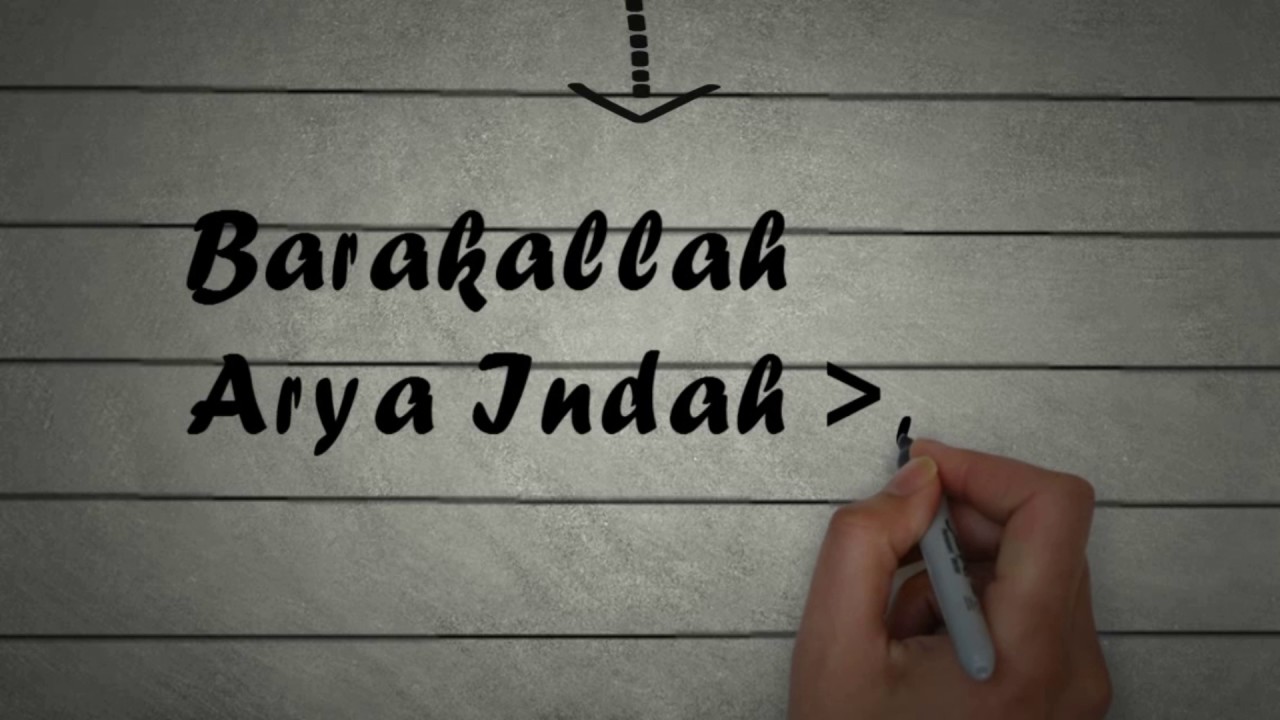 Barakallah
Arya Indah >,